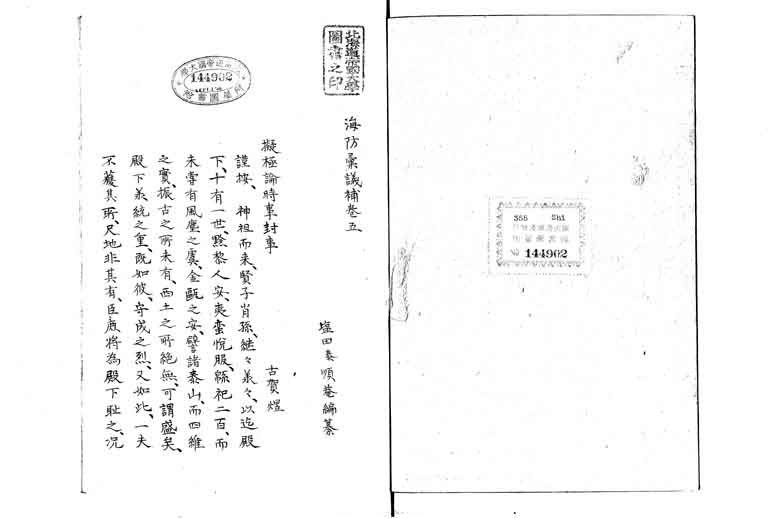 海防彙議補卷五
塩田泰順菴編纂
擬極論時事封事
古賀煜
謹按、神祖而来、賢子肖孫、継々義々、以迄殿
下、十有一世、黔黎人安、夷蛮悦服、緜祀二百、而
未嘗有風塵之虞、金甌之安、譬諸泰山、而四維
之實、振古之所未有、西土之所絶無、可謂盛矣、
殿下義統之重、既如彼、守成之烈、又如此、一夫
不獲其所、尺地非其有、臣庶将為殿下耻之、况
北海道帝國大學
圖書之印
144902
144902